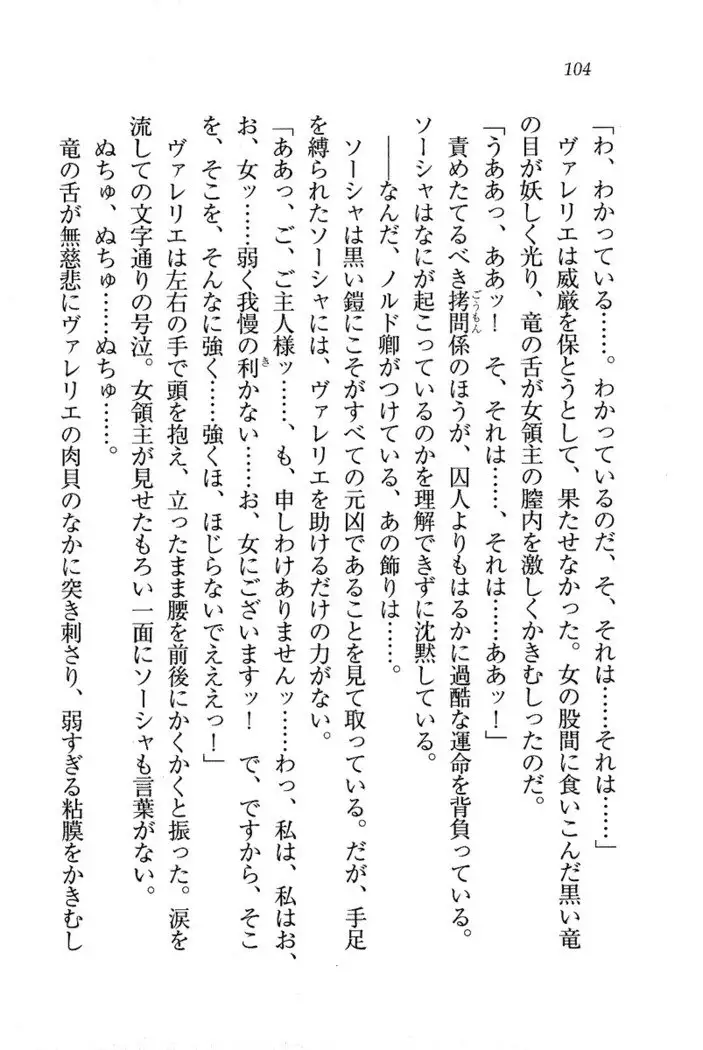 104
「わ、わかっている……。わかっているのだ、そ、それは……それは……」
ヴァレリエは威厳を保とうとして、果たせなかった。女の股間に食いこんだ黒い竜
の目が妖しく光り、竜の舌が女領主の膣内を激しくかきむしったのだ。
「うああっ、ああッ！　そ、それは……、それは……ああッ！」
責めたてるべき拷問係のほうが、囚人よりもはるかに過酷な運命を背負っている。
ごうもん
ソーシャはなにが起こっているのかを理解できずに沈黙している。
――なんだ、ノルド卿がつけている、あの飾りは……。
ソーシャは黒い鎧にこそがすべての元凶であることを見て取っている。だが、手足
を縛られたソーシャには、ヴァレリエを助けるだけの力がない。
「ああっ、ご、ご主人様ッ……、も、申しわけありませんッ……わっ、私は、私はお、
お、女ッ……弱く我慢の利かない……お、女にございますッ！　で、ですから、そこ
き
を、そこを、そんなに強く……強くほ、ほじらないでえええっ！」
ヴァレリエは左右の手で頭を抱え、立ったまま腰を前後にかくかくと振った。涙を
流しての文字通りの号泣。女領主が見せたもろい一面にソーシャも言葉がない。
ぬちゅ、ぬちゅ……ぬちゅ……。
竜の舌が無慈悲にヴァレリエの肉貝のなかに突き刺さり、弱すぎる粘膜をかきむし